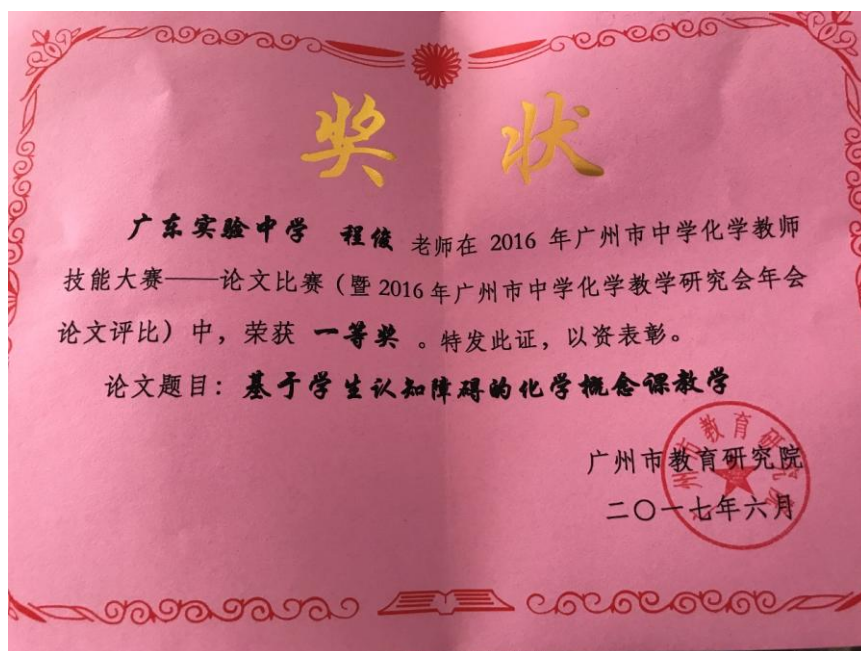 奖 状
广东实验中学 程俊 老师在 2016 年广州市中学化学教师
技能大赛——论文比赛（暨 2016 年广州市中学化学教学研究会年会
论文评比）中，荣获 一等奖 。特发此证，以资表彰。
论文题目：基于学生认知障碍的化学概念课教学
广州市教育研究院
二〇一七年六月
广州市教育研究院